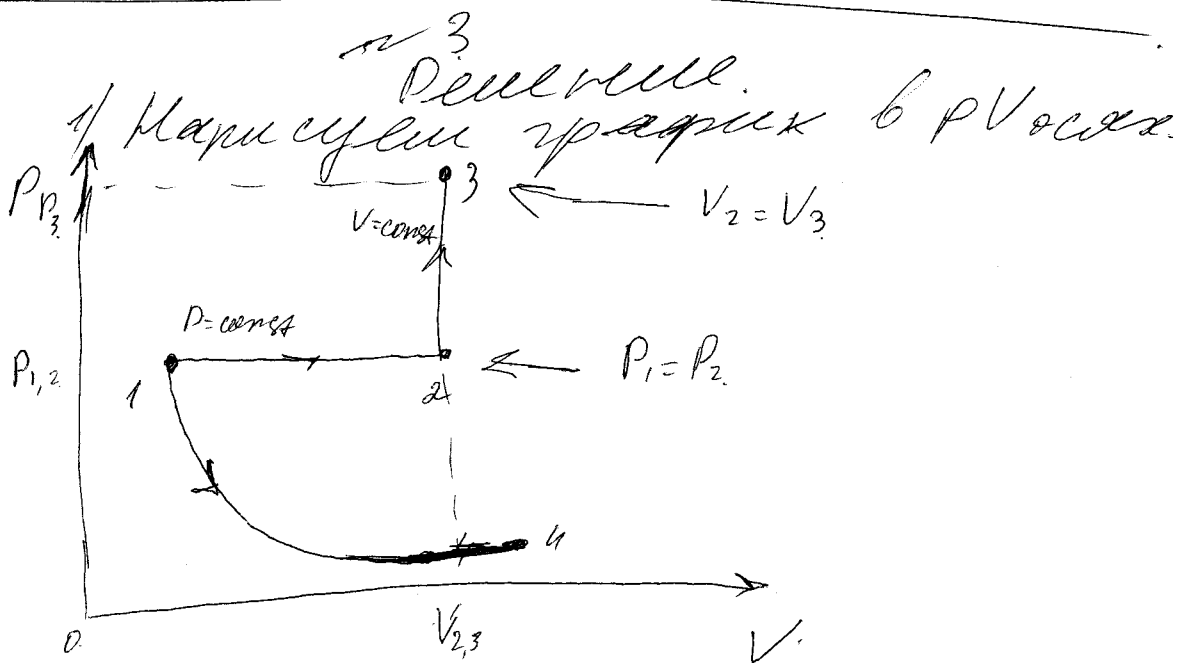 № 3
Решение.
1) Нарисуем график в pV осях.
P
P3
3
V2 = V3
V=const
P=const
P1,2
P1 = P2
1
2
4
0
V2,3
V